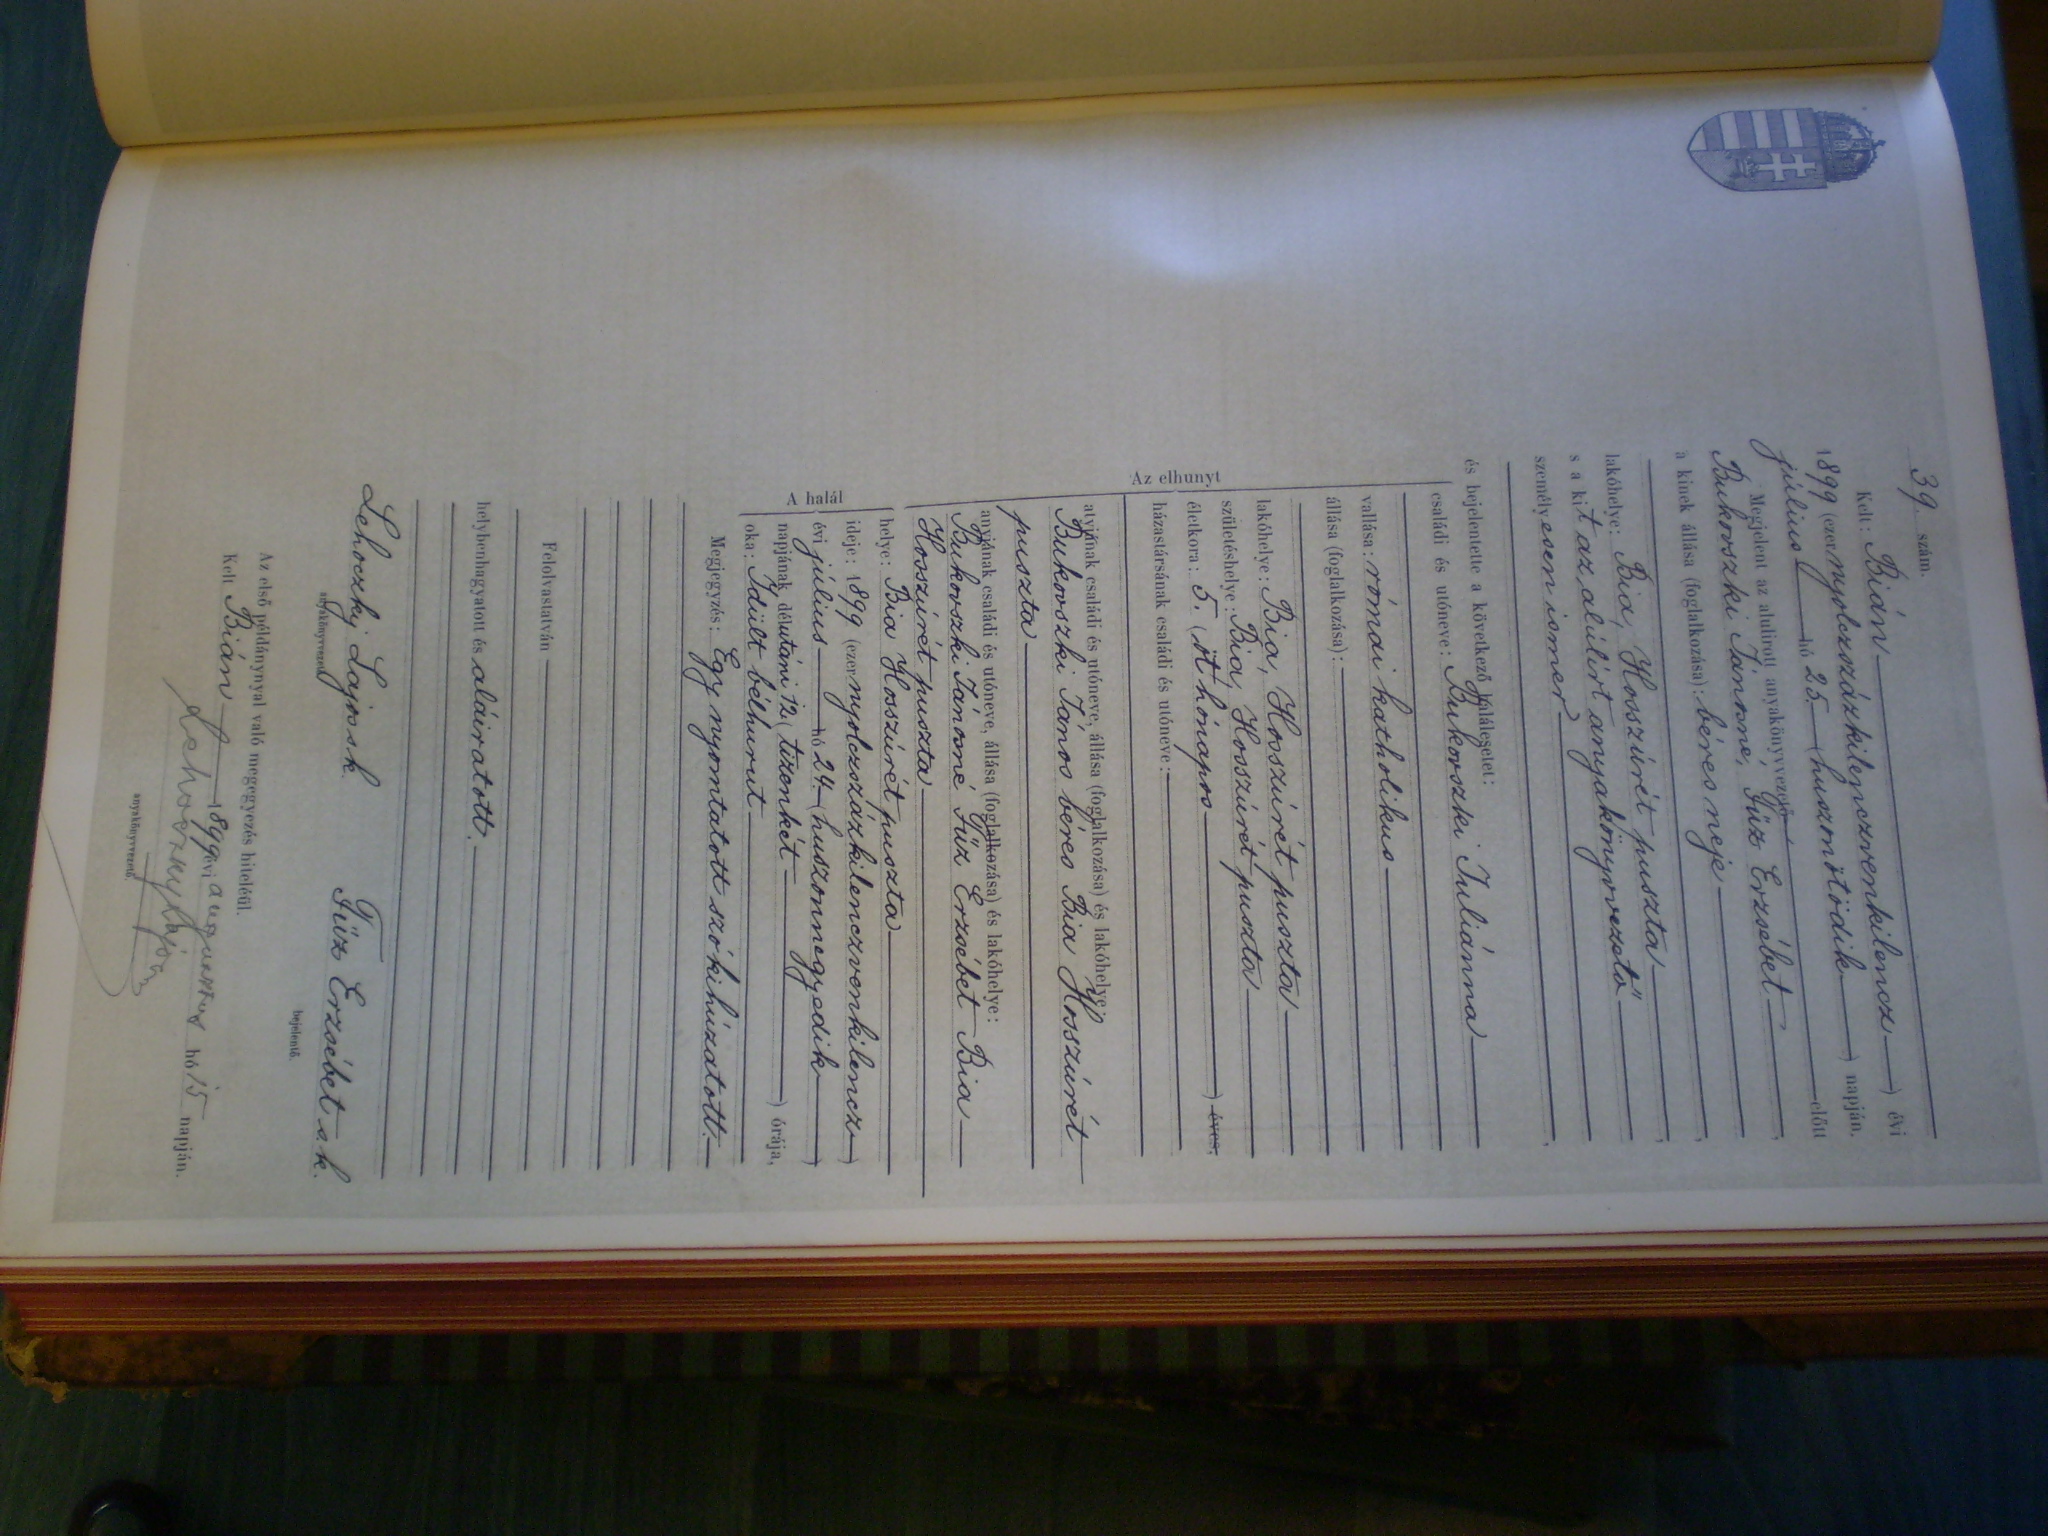 39 szám.
Kelt: Bián évi
1899 (ezernyolczszázkilenczvenkilencz) napján.
július hó 25 (huszonötödik)
Megjelent az alulirott anyakönyvvezető előtt
Bukovszki Jánosné, Füz Erzsébet
a kinek állása (foglalkozása): béres neje
lakóhelye: Bia, Hosszúrét puszta
s a kit az alúlirt anyakönyvvezető
személyesen ismer,
és bejelentette a következő halálesetet:
Az elhunyt
családi és utóneve: Bukovszki Juliánna
vallása: római katholikus
állása (foglalkozása):
lakóhelye: Bia, Hosszúrét puszta
születéshelye: Bia, Hosszúrét puszta
életkora: 5. (öt hónapos) éves,
házastársának családi és utóneve:
atyjának családi és utóneve, állása (foglalkozása) és lakóhelye:
Bukovszki János béres Bia Hosszúrét
puszta
anyjának családi és utóneve, állása (foglalkozása) és lakóhelye:
Bukovszki Jánosné Füz Erzsébet Bia
Hosszúrét puszta
A halál
helye: Bia Hosszúrét puszta
ideje: 1899 (ezernyolczszázkilenczvenkilencz)
évi július hó 24 (huszonnegyedik
napjának délutáni 12 (tizenkét) órája,
oka: Idült bélhurut
Megjegyzés: Egy nyomtatott szó kihúzatott.
Felolvastatván
helybenhagyatott és aláiratott.
Lehoczky Lajos sk. Füz Erzsébet s.k.
anyakönyvvezető bejelentő.
Az első példánynyal való megegyezés hiteléül.
Kelt Bián 1899 évi augusztus hó 15 napján.
Lehoczky Lajos
anyakönyvvezető.